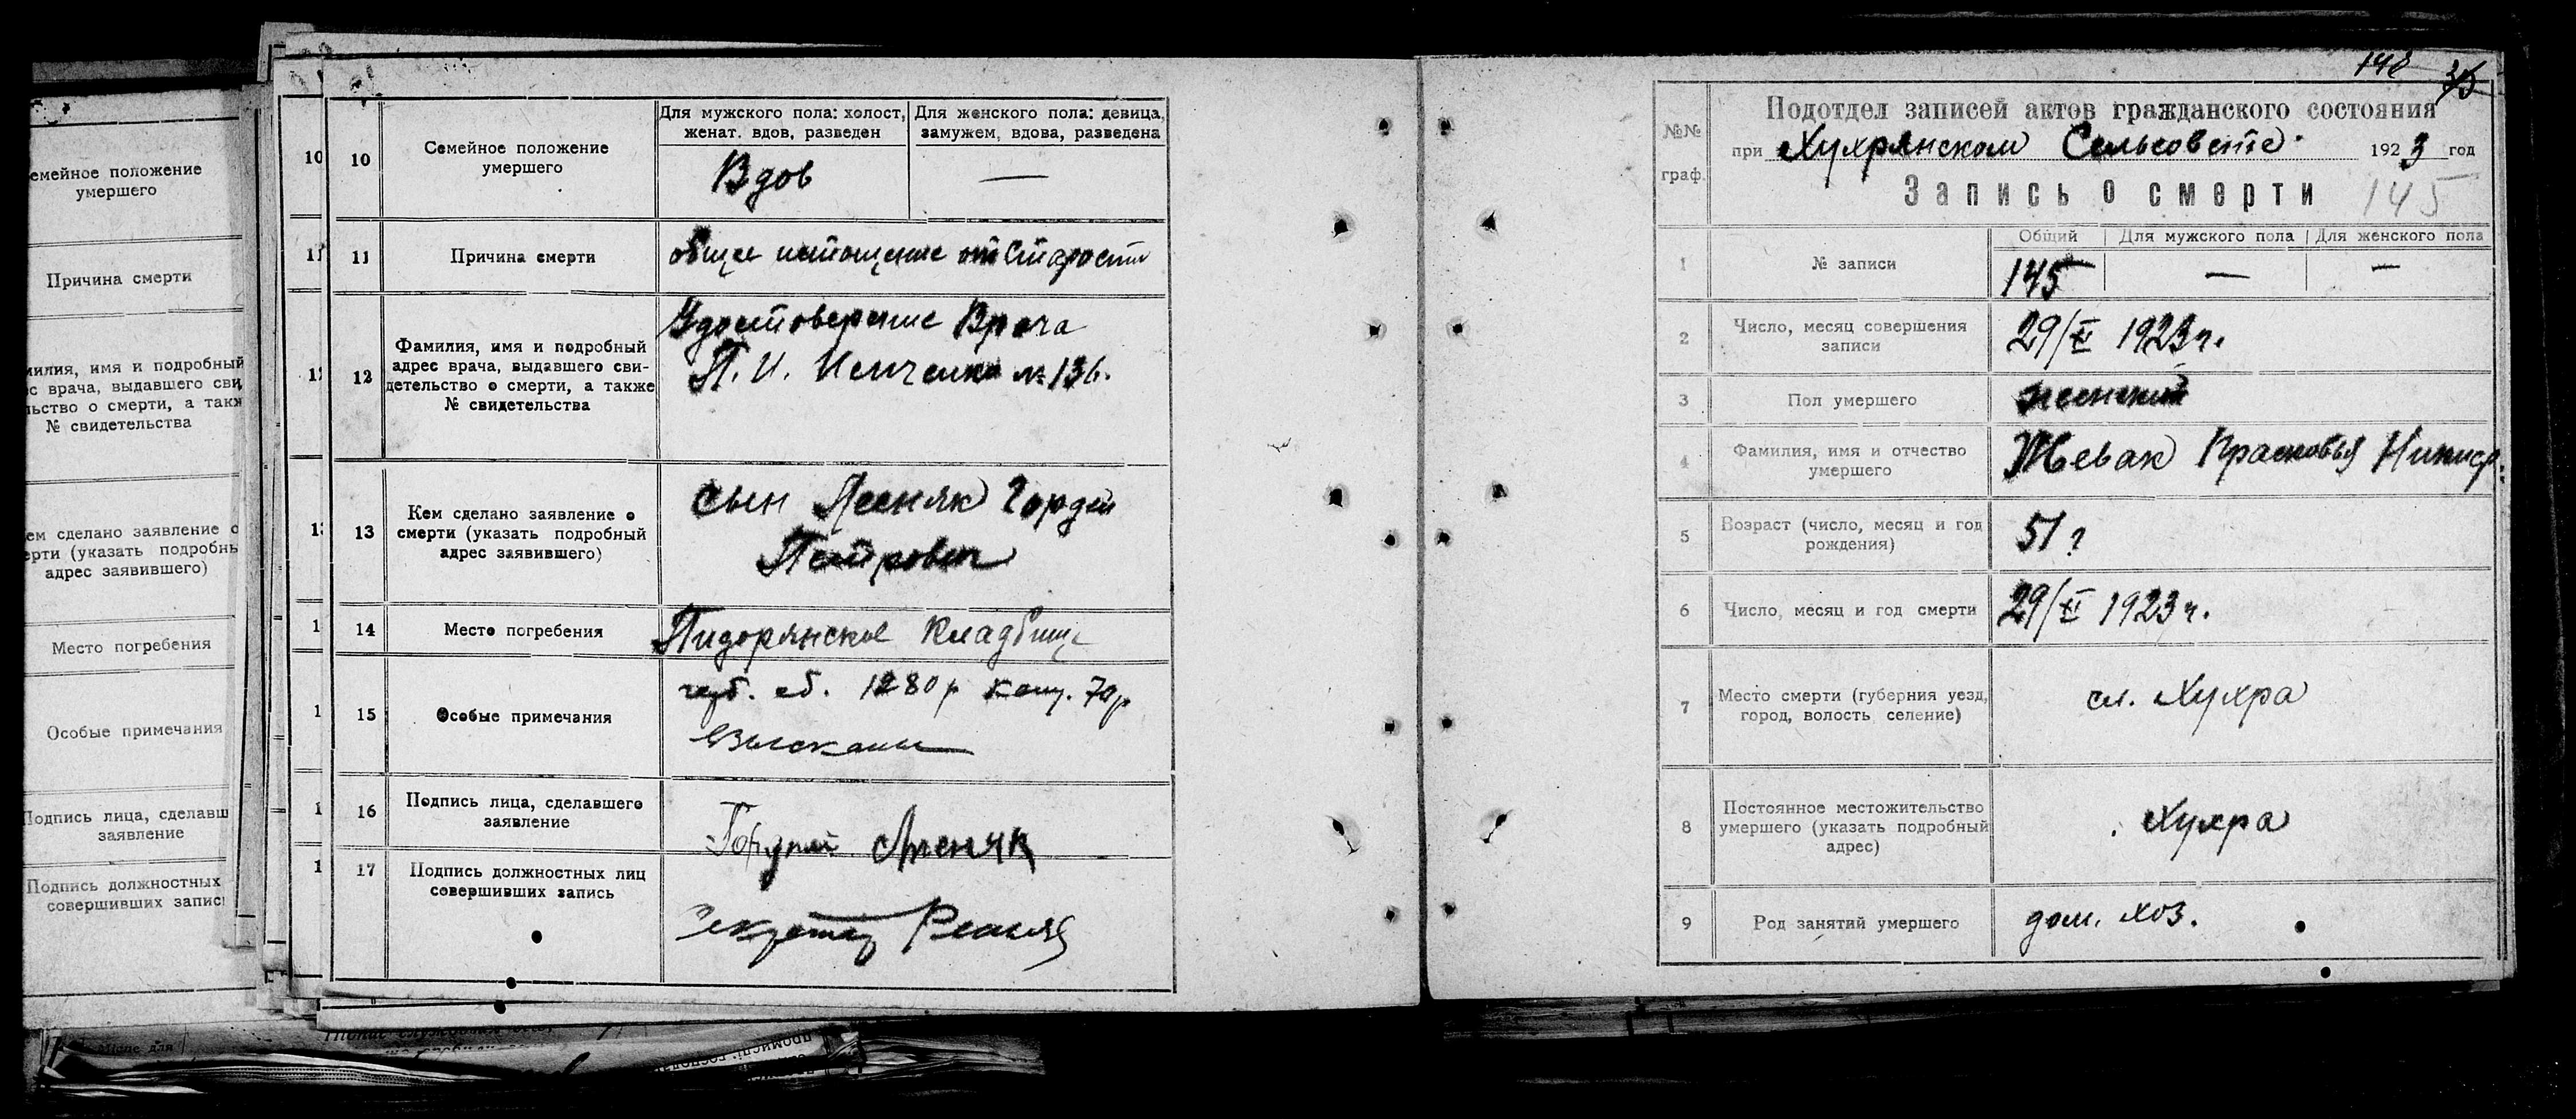 10
Семейное положение
умершего
Для мужского пола: холост,
женат. вдов, разведен
Для женского пола: девица,
замужем, вдова, разведена
Вдов
—
11
Причина смерти
общее истощение от старости
12
Фамилия, имя и подробный
адрес врача, выдавшего сви-
детельство о смерти, а также
№ свидетельства
Удостоверение Врача
П. И. № 136.
13
Кем сделано заявление о
смерти (указать подробный
адрес заявившего)
сын Лесняк Гордей
Петрович
14
Место погребения
Пидорянское Кладбище
15
Особые примечания
герб. сб. 1280 р канц. 70 р
Взысканы
16
Подпись лица, сделавшего
заявление
Гордей Лесняк
17
Подпись должностных лиц
совершивших запись
Секретарь
емейное положение
умершего
Причина смерти
милия, имя и подробный
с врача, выдавшего сви
льство о смерти, а такж
№ свидетельства
ем сделано заявление о
ерти (указать подробны
адрес заявившего)
Место погребения
Особые примечания
Подпись лица, сделавш
заявление
Подпись должностных
совершивших запис
146
№№
граф.
Подотдел записей актов гражданского состояния
при Хухрянском Сельсовете 1923 год
Запись о смерти 145
1
№ записи
Общий
Для мужского пола
Для женского пола
145
—
—
2
Число, месяц совершения
записи
29/XI 1923 г.
3
Пол умершего
женский
4
Фамилия, имя и отчество
умершего
Жевак Прасковья Никиф.
5
Возраст (число, месяц и год
рождения)
51 г
6
Число, месяц и год смерти
29/XI 1923 г.
7
Место смерти (губерния уезд,
город, волость селение)
сл. Хухра
8
Постоянное местожительство
умершего (указать подробный
адрес)
Хухра
9
Род занятий умершего
дом. хоз.